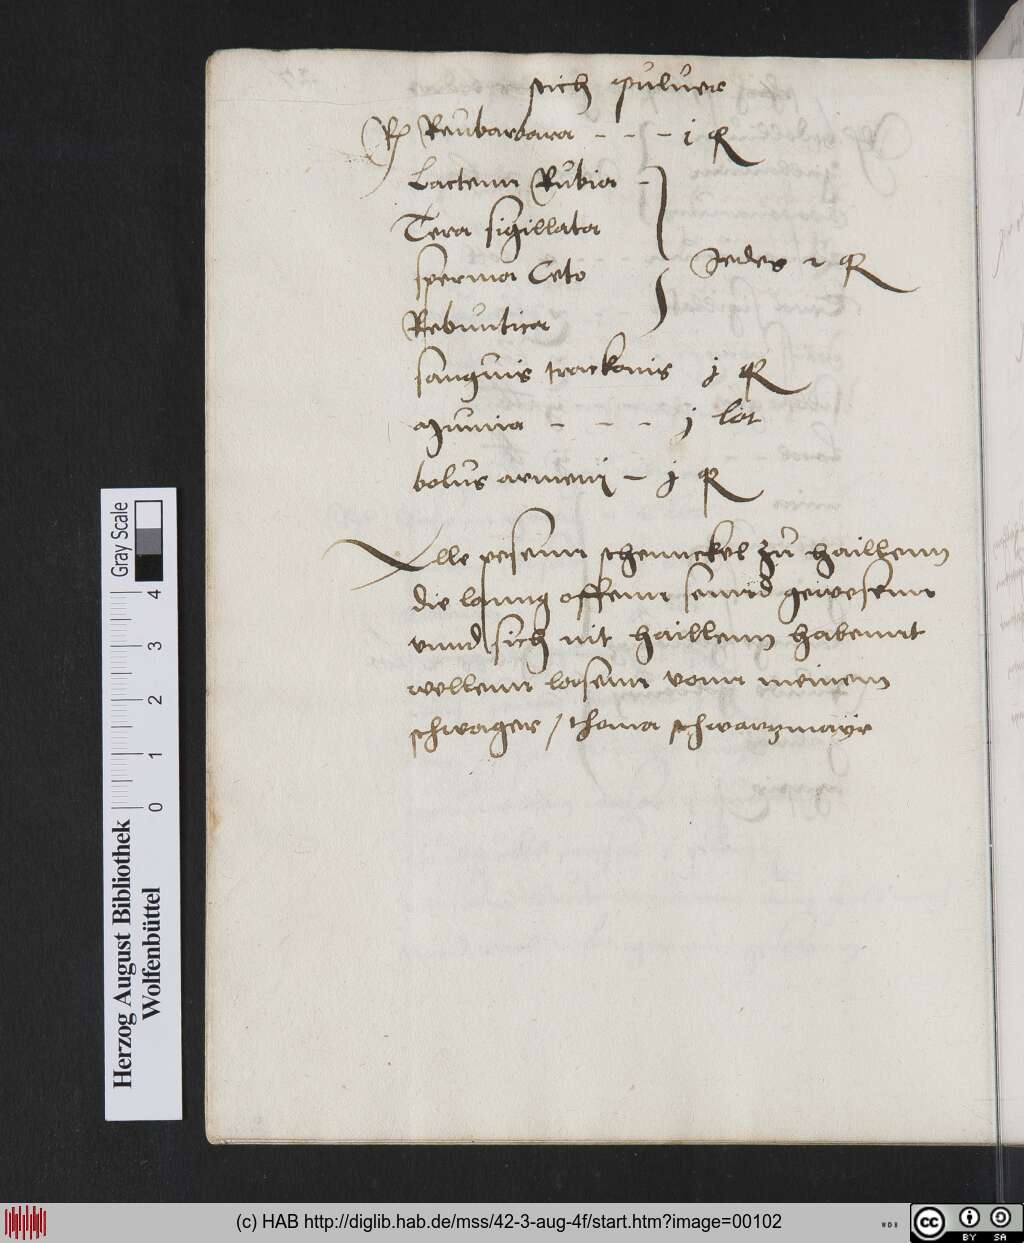 stich pulver
Rp Reubarbara - - - j q
Lacteum Rubia -
Tera sigillata
sperma Ceto
Jedes 1 q
Rebuntica
sanguis trackonis j q
Mumia - - - j lot
bolus armenj - j q
Alle pesenn schennckel zů haillenn
die lanng offenn seinnd gewesenn
vnnd sich nit haillenn habennt
wellenn lassenn vonn meinem
schwager / thoma schwartzmayr
Gray Scale
0 1 2 3 4
Herzog August Bibliothek
Wolfenbüttel
(c) HAB http://diglib.hab.de/mss/42-3-aug-4f/start.htm?image=00102
WDB
cc BY SA